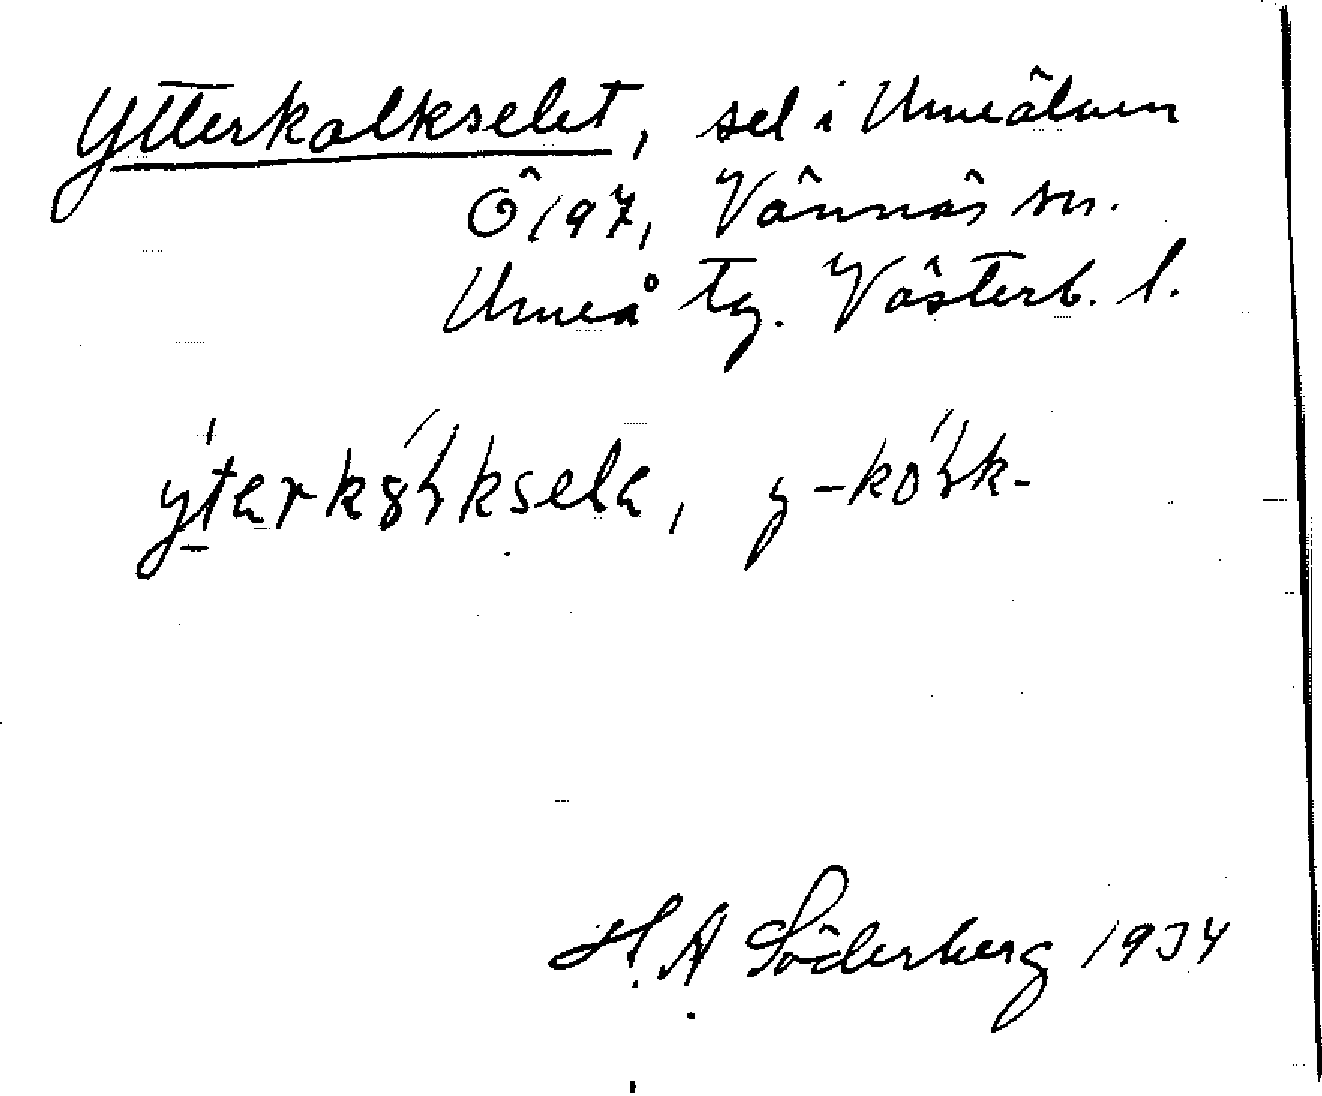 Ytterkalkselet, sel i Umeälven
Ö 197, Vännäs sn.
Umeå tg. Västerb. l.
H. A Söderberg 1934